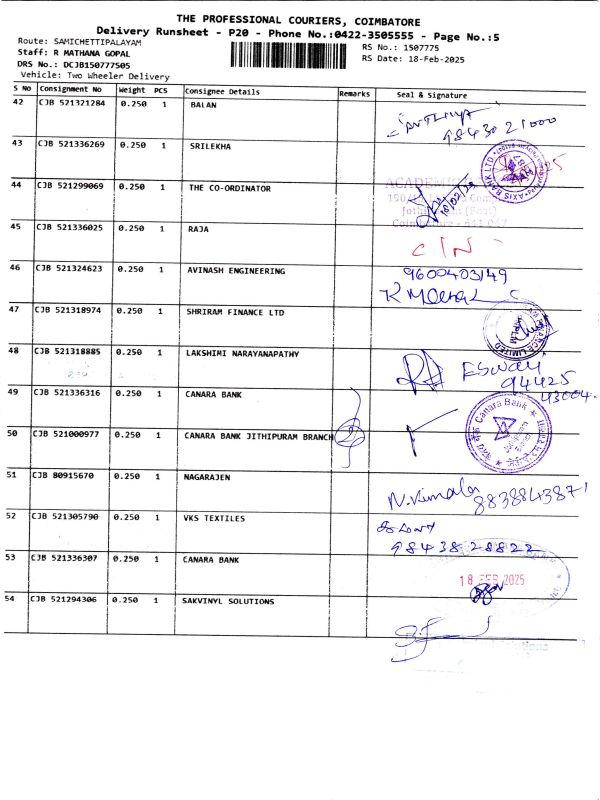 THE PROFESSIONAL COURIERS, COIMBATORE
Delivery Runsheet - P20 - Phone No.:0422-3505555 - Page No.:5
Route: SAMICHETTIPALAYAM
RS No.: 1507775
Staff: R MATHANA GOPAL
RS Date: 18-Feb-2025
DRS No.: DCJB150777505
Vehicle: Two Wheeler Delivery
S No Consignment No Weight PCS Consignee Details Remarks Seal & Signature
42 CJB 521321284 0.250 1 BALAN
98430 21000
43 CJB 521336269 0.250 1 SRILEKHA
AXIS BANK LTD
44 CJB 521299069 0.250 1 THE CO-ORDINATOR
45 CJB 521336025 0.250 1 RAJA
C/N
46 CJB 521324623 0.250 1 AVINASH ENGINEERING 9600403149
47 CJB 521318974 0.250 1 SHRIRAM FINANCE LTD
LIMITED
48 CJB 521318885 0.250 1 LAKSHIMI NARAYANAPATHY
94425
43004
49 CJB 521336316 0.250 1 CANARA BANK
Canara Bank
50 CJB 521000977 0.250 1 CANARA BANK JITHIPURAM BRANCH
51 CJB 80915670 0.250 1 NAGARAJEN
N. Vimala 8838843871
52 CJB 521305790 0.250 1 VKS TEXTILES
98438 28822
53 CJB 521336307 0.250 1 CANARA BANK
18 FEB 2025
54 CJB 521294306 0.250 1 SAKVINYL SOLUTIONS